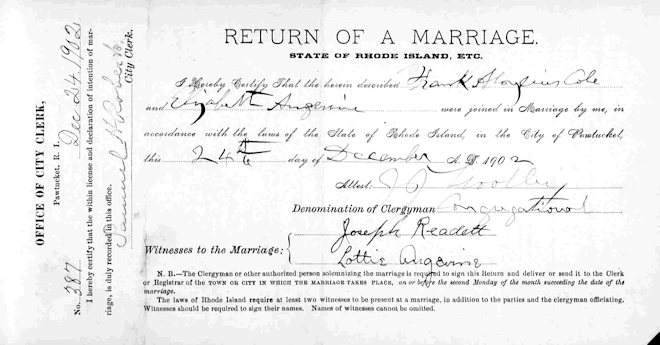 RETURN OF A MARRIAGE.
STATE OF RHODE ISLAND, ETC.
I Hereby Certify That the herein described Frank Aloysius Cole
and Elizabeth Angevine were joined in Marriage by me, in
accordance with the laws of the State of Rhode Island, in the City of Pawtucket,
this 24th day of December A. D. 1902
Attest:
Denomination of Clergyman Congregational
Witnesses to the Marriage:
Joseph Readett
Lottie Angevine
N. B.—The Clergyman or other authorized person solemnizing the marriage is required to sign this Return and deliver or send it to the Clerk
or Registrar of the TOWN OR CITY IN WHICH THE MARRIAGE TAKES PLACE, on or before the second Monday of the month succeeding the date of the
marriage.
The laws of Rhode Island require at least two witnesses to be present at a marriage, in addition to the parties and the clergyman officiating.
Witnesses should be required to sign their names. Names of witnesses cannot be omitted.
OFFICE OF CITY CLERK,
Pawtucket, R. I. Dec 24, 1902
I hereby certify that the within license and declaration of intention of mar-
riage, is duly recorded in this office.
No. 387 Samuel H. Roberts
City Clerk.